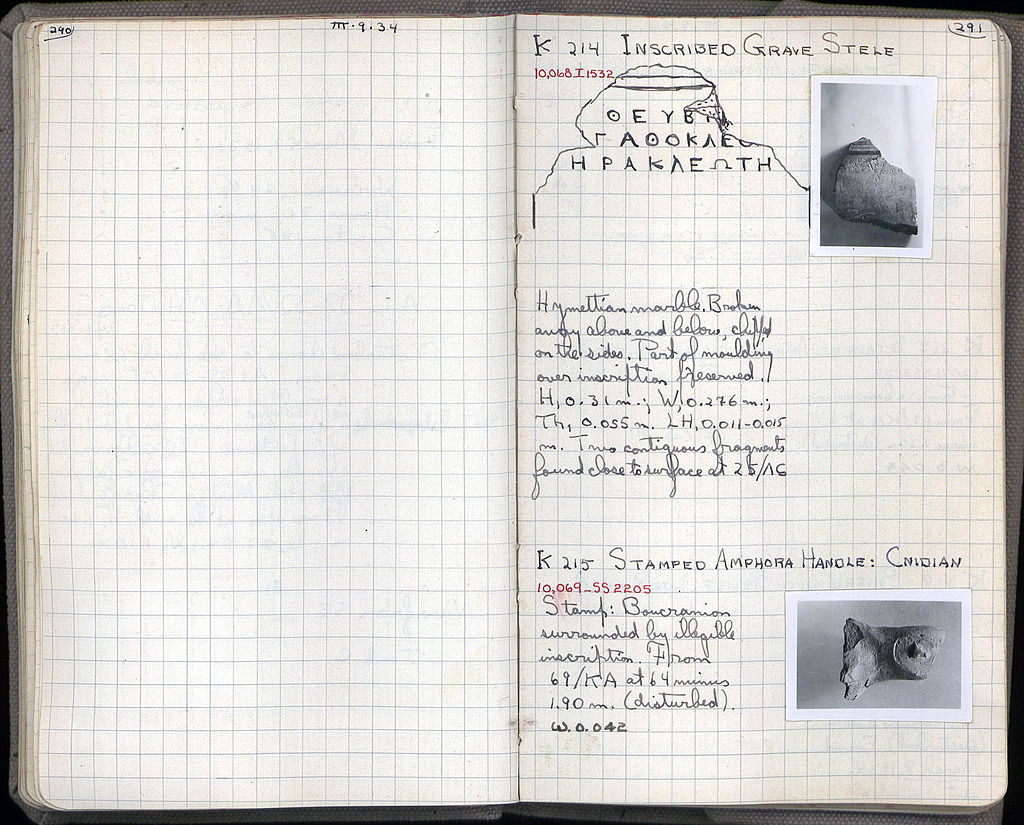 290
III·9·34
291
K 214 INSCRIBED GRAVE STELE
10,068 I 1532
ΘΕΥΒΙ
ΓΑΘΟΚΛΕ
ΗΡΑΚΛΕΩΤΗ
Hymettian marble. Broken
away above and below, chipped
on the sides. Part of moulding
over inscription preserved.
H, 0.31 m.; W, 0.276 m.;
Th, 0.055 m. LH, 0.011-0.015
m. Two contiguous fragments
found close to surface at 25/ΛϚ
K 215 STAMPED AMPHORA HANDLE: CNIDIAN
10,069-SS 2205
Stamp: Boucranion
surrounded by illegible
inscription. From
69/ΚΑ at 64 minus
1.90 m. (disturbed).
W. 0.042